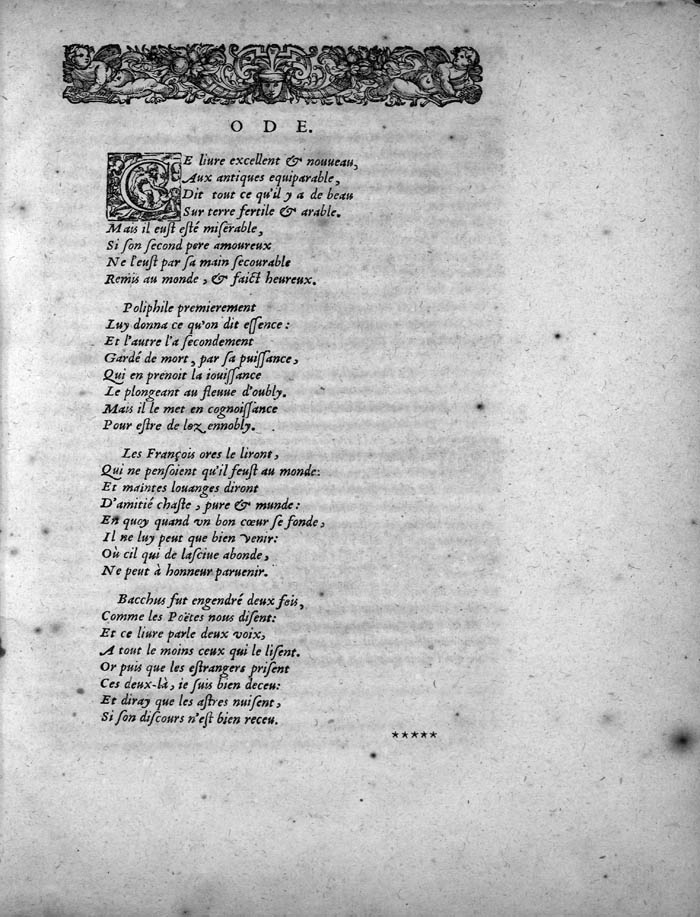 ODE.
CE liure excellent & nouueau,
Aux antiques equiparable,
Dit tout ce qu'il y a de beau
Sur terre fertile & arable.
Mais il eust esté miserable,
Si son second pere amoureux
Ne l'eust par sa main secourable
Remis au monde, & faict heureux.
Poliphile premierement
Luy donna ce qu'on dit essence:
Et l'autre l'a secondement
Gardé de mort, par sa puissance,
Qui en prenoit la iouissance
Le plongeant au fleuue d'oubly.
Mais il le met en cognoissance
Pour estre de loz ennobly.
Les François ores le liront,
Qui ne pensoient qu'il feust au monde:
Et maintes louanges diront
D'amitié chaste, pure & munde:
En quoy quand vn bon cœur se fonde,
Il ne luy peut que bien venir:
Où cil qui de lasciue abonde,
Ne peut à honneur paruenir.
Bacchus fut engendré deux fois,
Comme les Poëtes nous disent:
Et ce liure parle deux voix,
A tout le moins ceux qui le lisent.
Or puis que les estrangers prisent
Ces deux-là, ie suis bien deceu:
Et diray que les astres nuisent,
Si son discours n'est bien receu.
*****